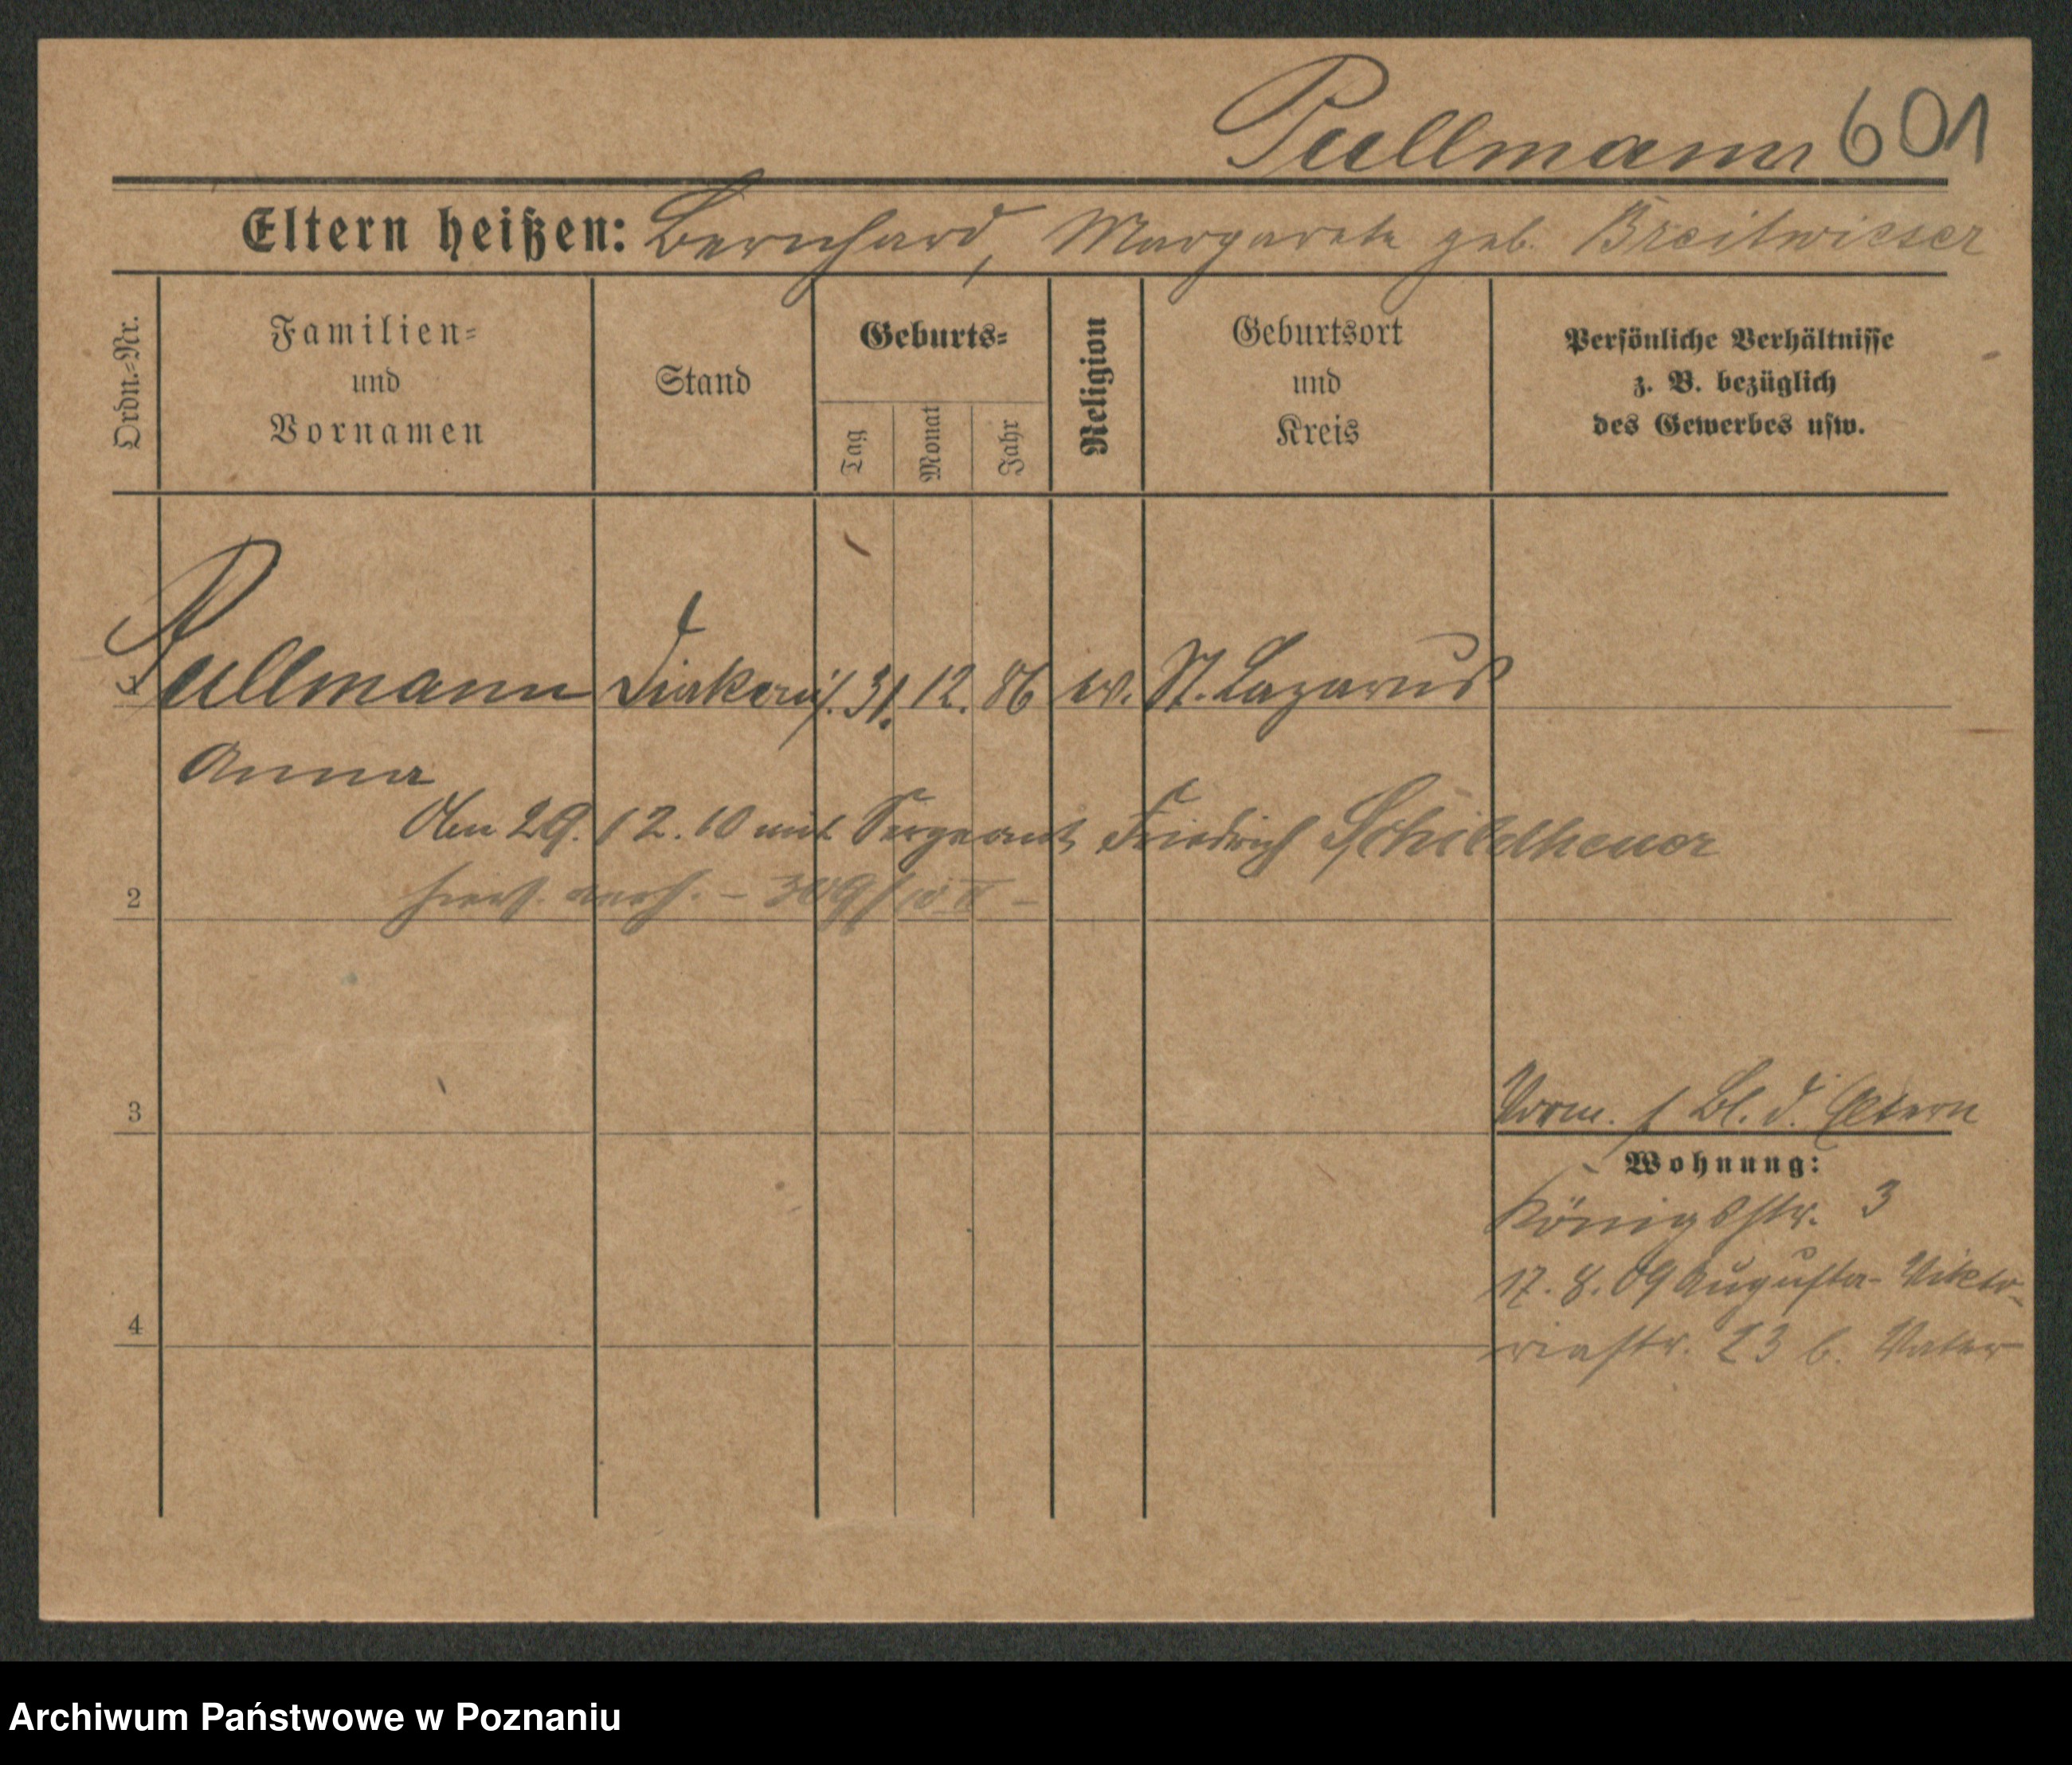 Pullmann 601
Eltern heißen: Bernhard, Margarete geb. Breitwieser
Ordn.-Nr.
Familien-
und
Vornamen
Stand
Geburts-
Tag
Monat
Jahr
Religion
Geburtsort
und
Kreis
Persönliche Verhältnisse
z. B. bezüglich
des Gewerbes usw.
1 Pullmann 31. 12. 86 ev. St. Lazarus
Anna
Am 29. 12. 10 mit Sergeant Friedrich Schildheuer
2
3
Vorm. f Bl. d. Eltern
Wohnung:
Königsstr. 3
17. 8. 09 Augusta-Vikto-
4
riastr. 23 b. Vater
Archiwum Państwowe w Poznaniu